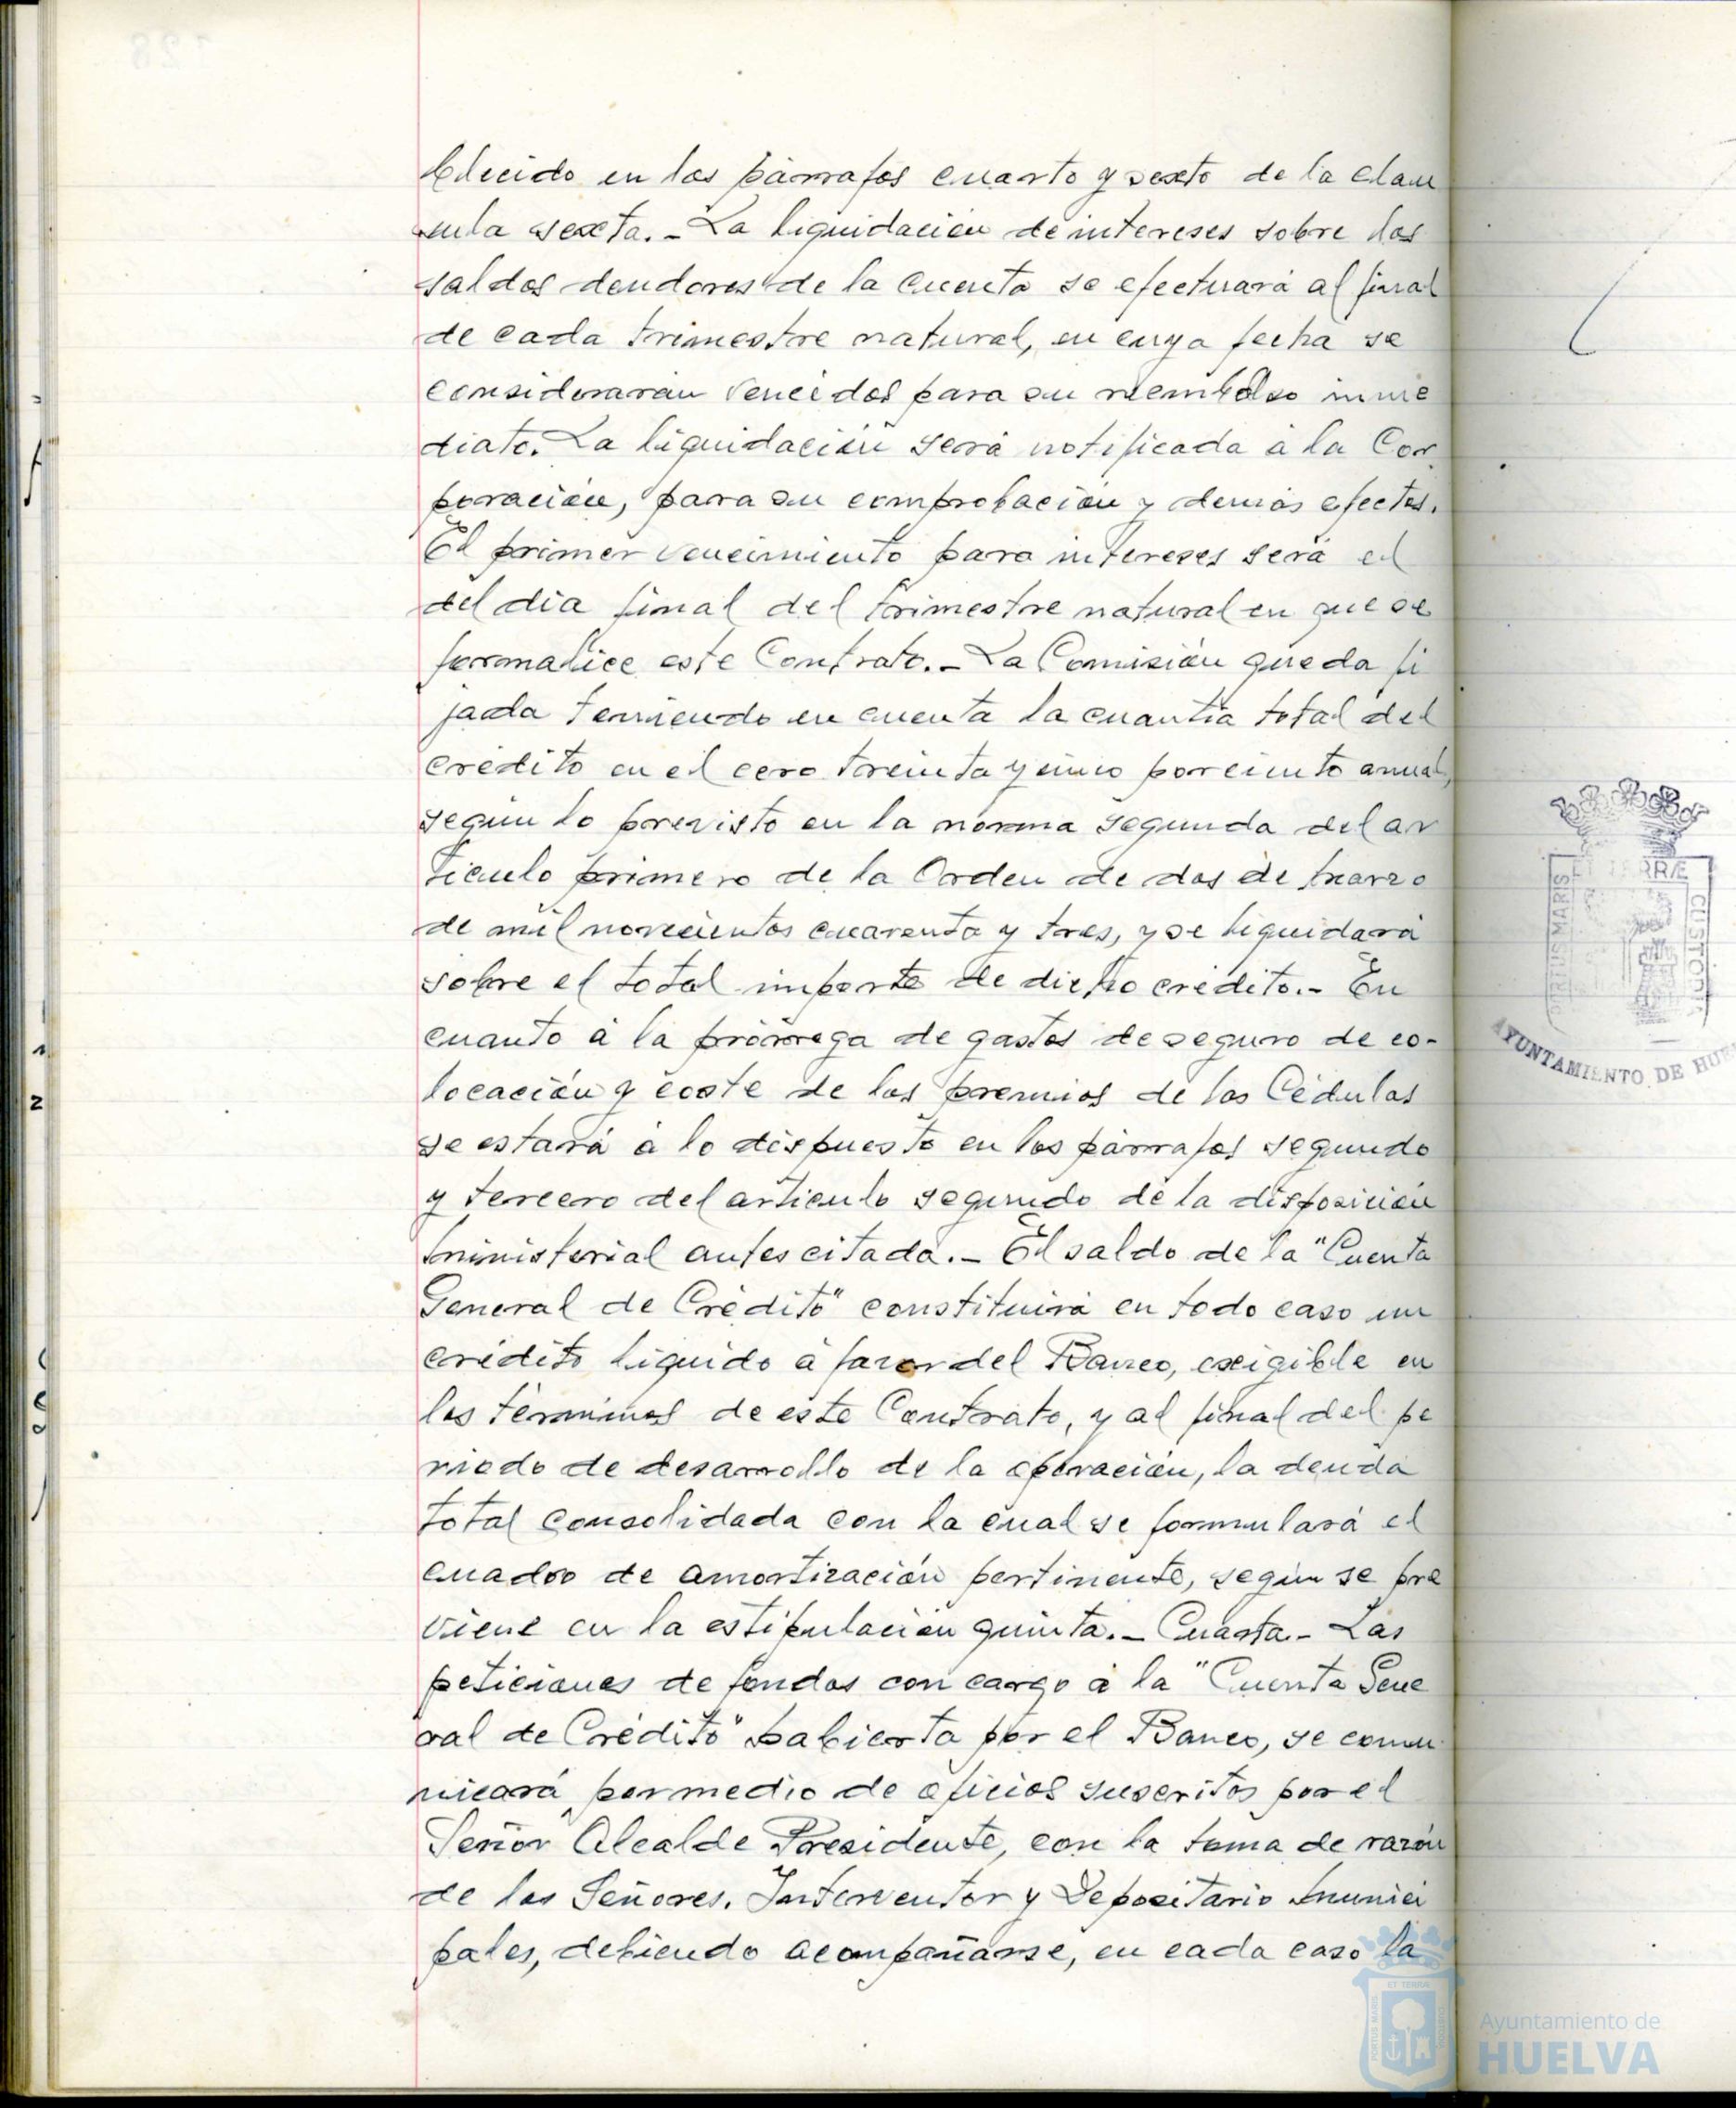 blecido en los párrafos cuarto y sexto de la clau
sula sexta.- La liquidación de intereses sobre los
saldos deudores de la cuenta se efectuará al final
de cada trimestre natural, en cuya fecha se
considerarán vencidos para su reembolso inme
diato. La liquidación será notificada a la Cor
poración, para su comprobación y demás efectos.
El primer vencimiento para intereses será el
del día final del trimestre natural en que se
formalice este Contrato.- La Comisión queda fi
jada teniendo en cuenta la cuantía total del
crédito en el cero treinta y cinco por ciento anual,
según lo previsto en la norma segunda del ar
ticulo primero de la Orden de dos de marzo
de mil novecientos cuarenta y tres, y se liquidará
sobre el total importe de dicho crédito.- En
cuanto á la prórroga de gastos de seguro de co-
locación y coste de los premios de las Cédulas
se estará a lo dispuesto en los párrafos segundo
y tercero del artículo segundo de la disposición
ministerial antes citada.- El saldo de la "Cuenta
General de Crédito" constituirá en todo caso un
crédito líquido á favor del Banco, exigible en
los términos de este Contrato, y al final del pe
riodo de desarrollo de la operación, la deuda
total consolidada con la cual se formulará el
cuadro de amortización pertinente, según se pre
viene en la estipulación quinta.- Cuarta.- Las
peticiones de fondos con cargo á la "Cuenta Gene
ral de Crédito" abierta por el Banco, se comu
nicará por medio de oficios suscritos por el
Señor Alcalde Presidente, con la toma de razón
de los Señores. Interventor y Depositario munici
pales, debiendo acompañarse, en cada caso la
AYUNTAMIENTO DE HUE
PORTUS MARIS
ET TERRÆ
CUSTODIA
Ayuntamiento de
HUELVA